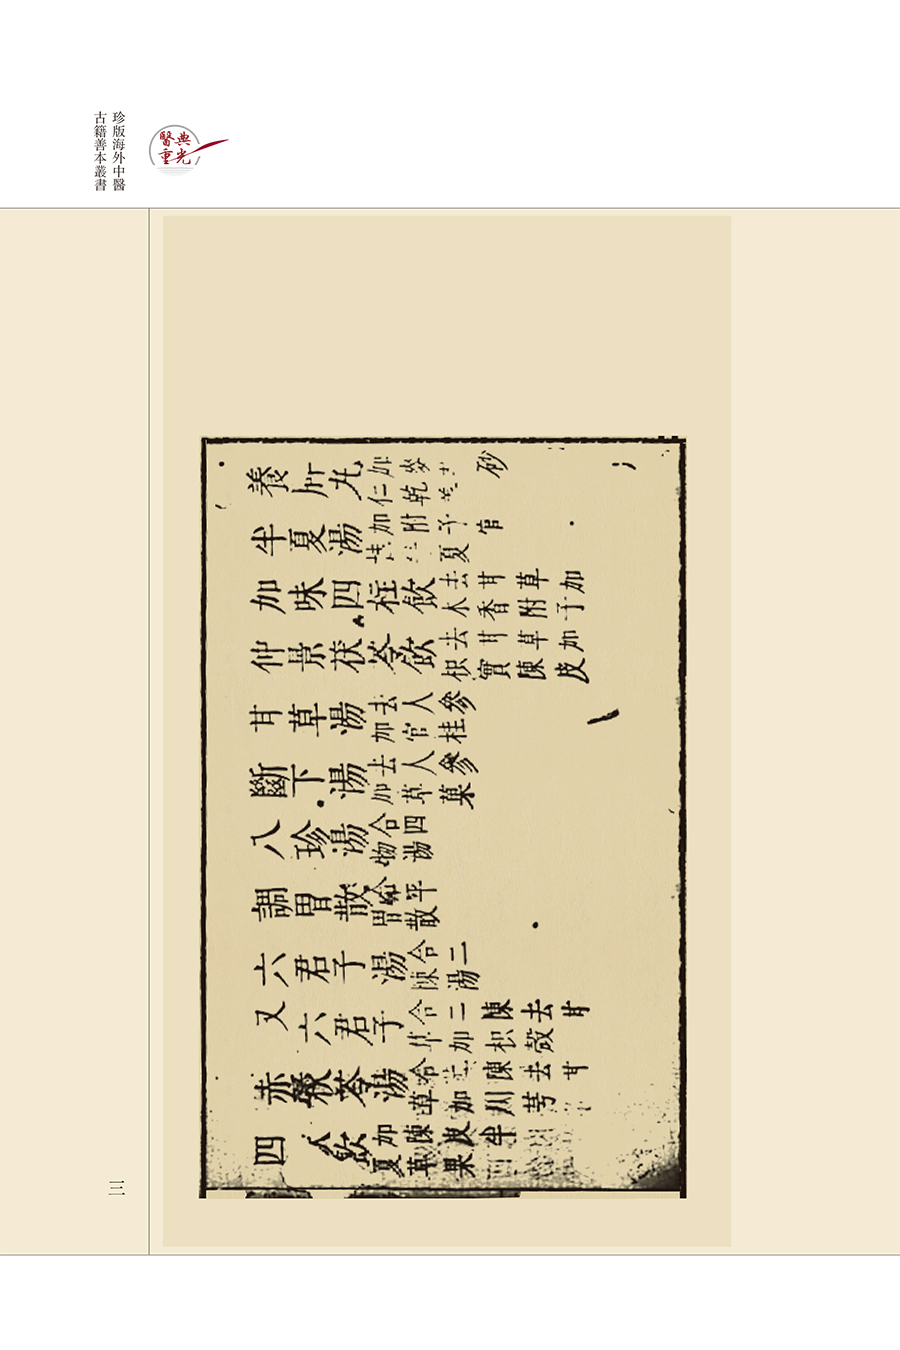 珍版海外中醫
古籍善本叢書
醫典重光
養脾丸 加麥砂仁乾姜
半夏湯 加附子官桂夏
加味四柱飲 去甘草加木香附子
仲景茯苓飲 去甘草加枳實陳皮
甘草湯 去人參加官桂
斷下湯 去人參加草菓
八珍湯 合四物湯
調胃散 合平胃散
六君子湯 合二陳湯
又六君子 合二陳去甘草加枳殼
赤茯苓湯 合二陳去甘草加川芎
四飲 加陳皮半夏草果
三